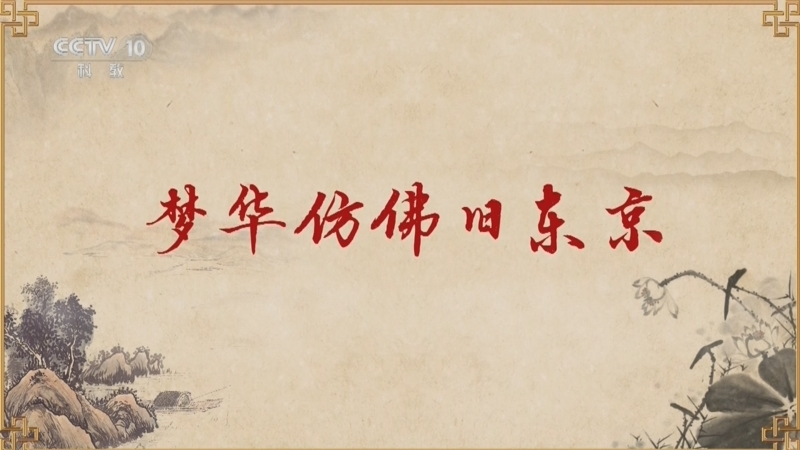 CCTV 10
科教
梦华仿佛旧东京